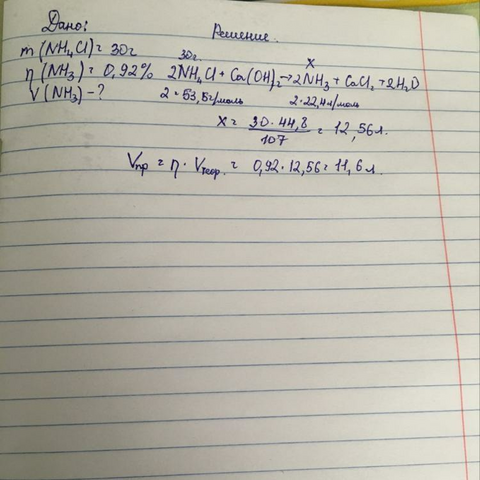 Дано:
Решение.
m(NH₄Cl) = 30г
η(NH₃) = 0,92%
V(NH₃) - ?
30г. x
2NH₄Cl + Ca(OH)₂ → 2NH₃ + CaCl₂ + 2H₂O
2 · 53,5г/моль 2 · 22,4л/моль
x = 30 · 44,8 / 107 = 12,56л.
Vпр = η · Vтеор. = 0,92 · 12,56 = 11,6л.